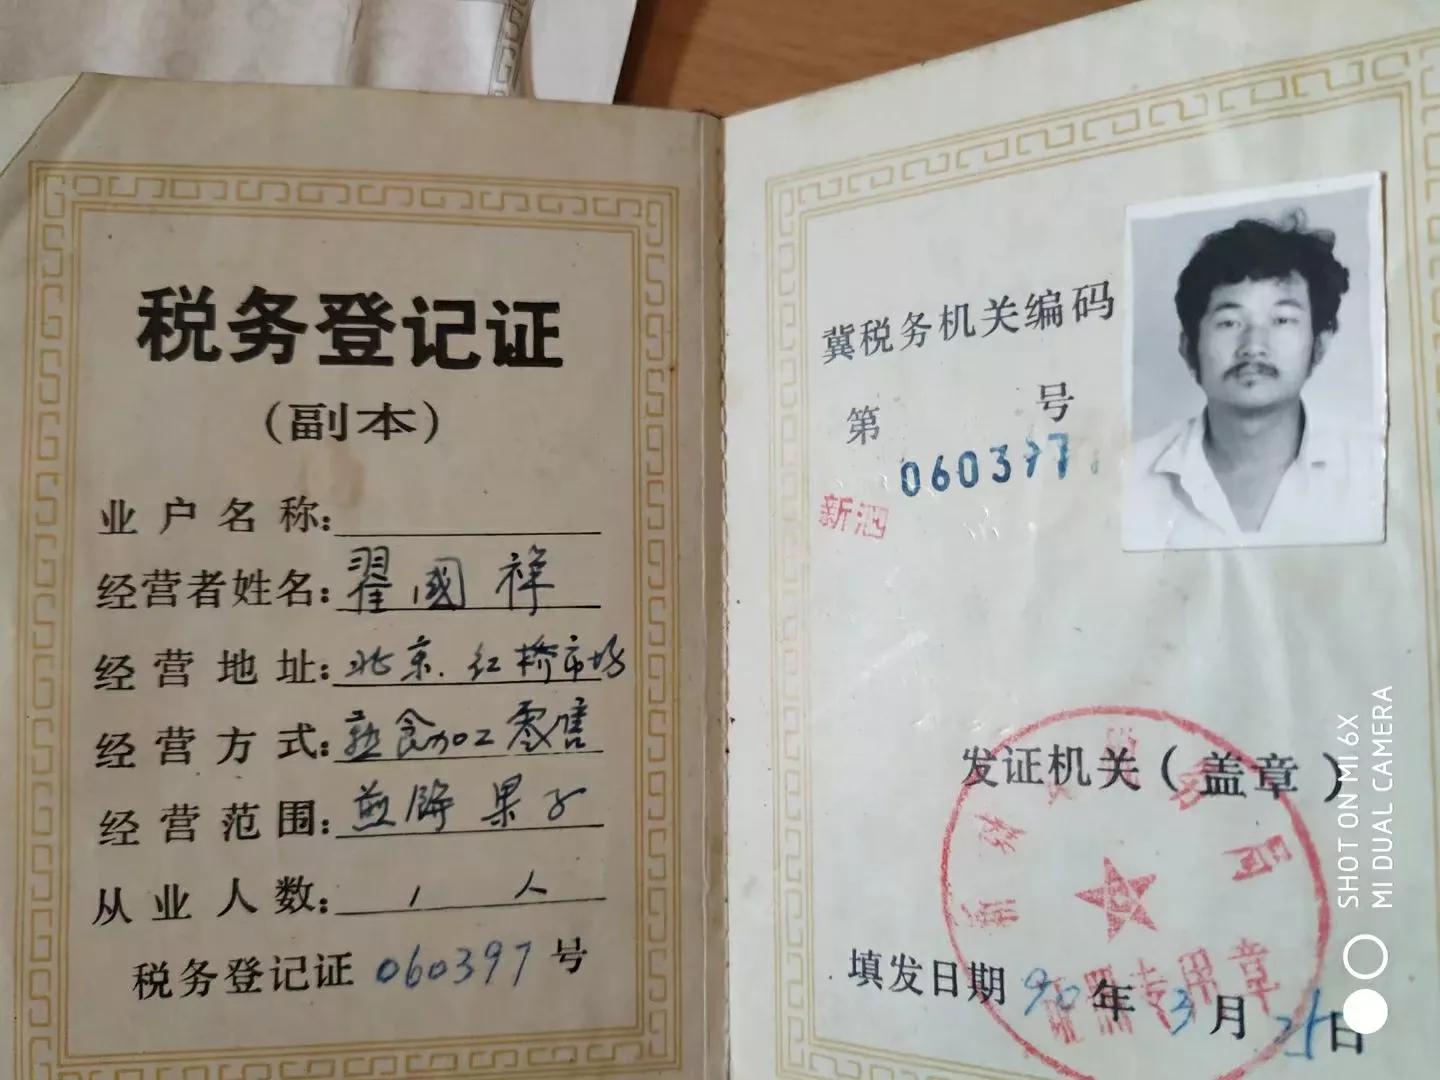 税务登记证
（副本）
业户名称：
经营者姓名：翟國祥
经营地址：北京.红桥市场
经营方式：熟食加工零售
经营范围：煎饼果子
从业人数：1人
税务登记证060397号
冀税务机关编码
第 号
060397
新泗
发证机关（盖章）
税务局
证照专用章
填发日期90年3月25日
SHOT ON MI 6X
MI DUAL CAMERA